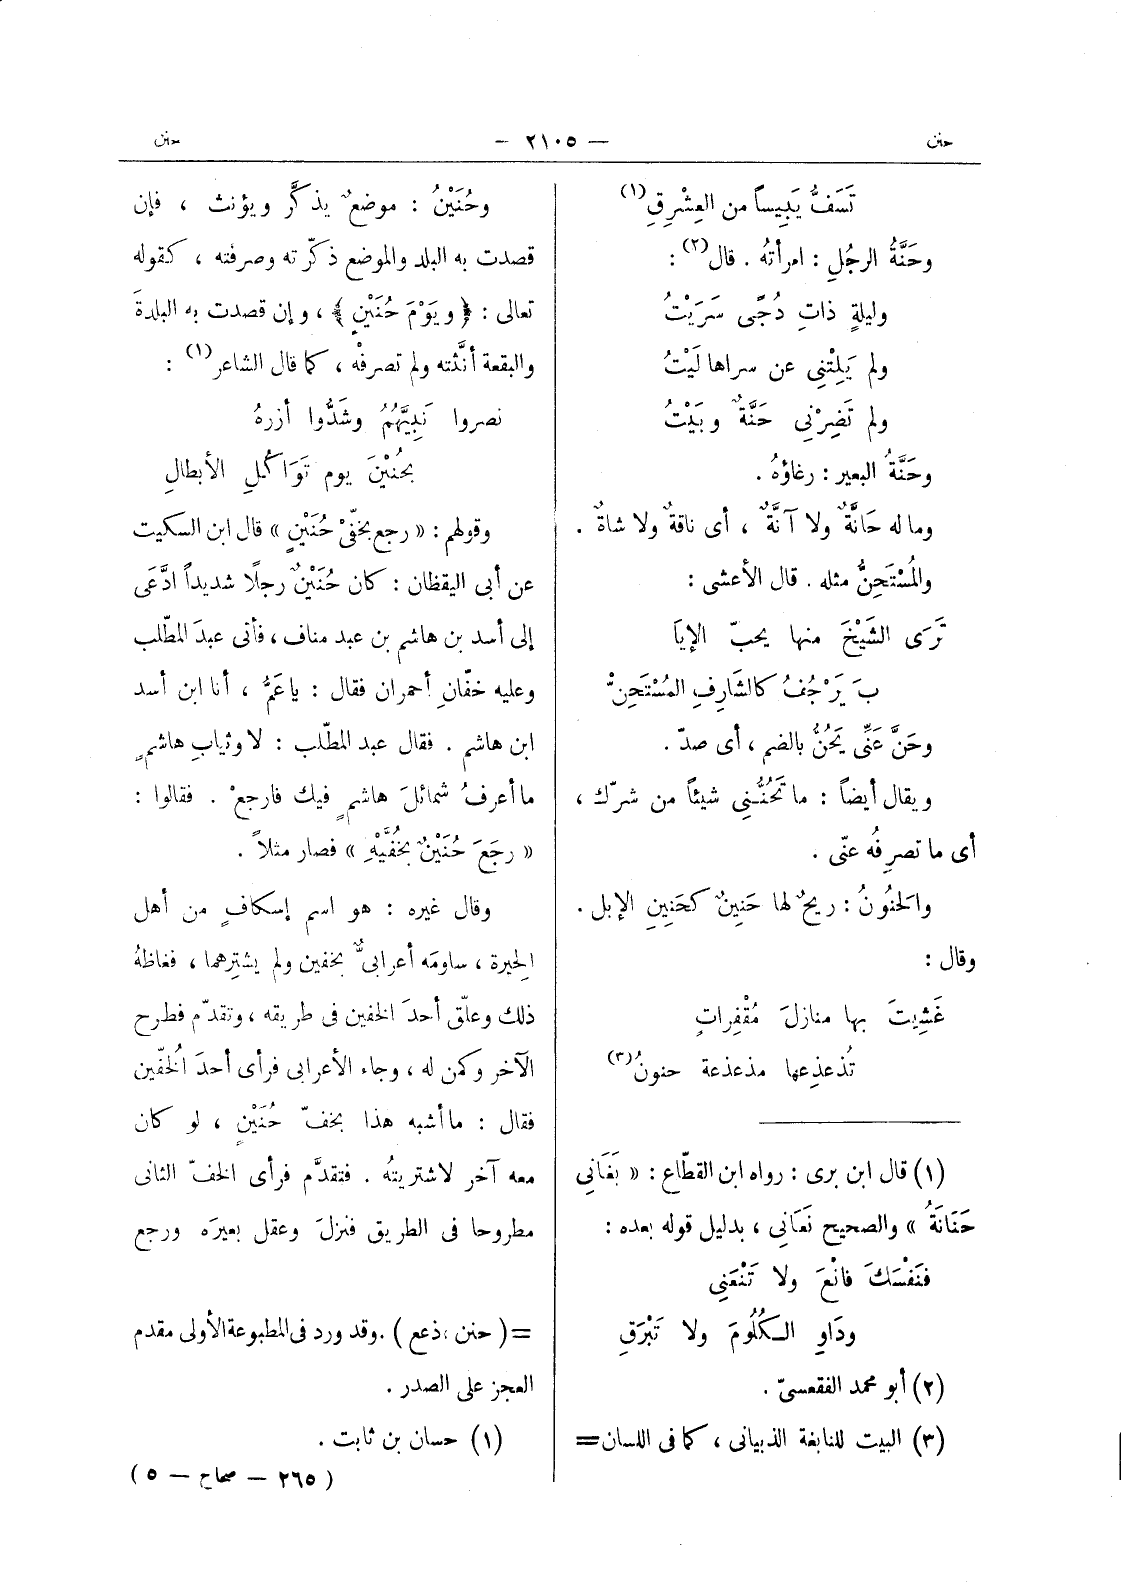 حنن
— ٢١٠٥ —
حنن
تَسَفُّ يَبِيساً من العِشْرِقِ(١)
وحَنَّةُ الرجُلِ : امرأتهُ . قال(٢) :
وليلةٍ ذاتِ دُجًى سَرَيْتُ
ولم يَلِتْنِى عن سراها لَيْتُ
ولم تَضِرْنِى حَنَّةٌ وبَيْتُ
وحَنَّةُ البعير : رغاؤهُ .
وما له حَانَّةٌ ولا آنَّةٌ ، أى ناقةٌ ولا شاةٌ .
والمُسْتَحِنُّ مثله . قال الأعشى :
تَرَى الشَيْخَ منها يحبّ الإيَا
بَ يَرْجُفُ كالشَارِفِ المُسْتَحِنْ
وحَنَّ عَنِّى يَحُنُّ بالضم ، أى صدّ .
ويقال أيضاً : ما تَحُنُّنِى شيئاً من شرّك ،
أى ما تصرِفُه عنّى .
والحَنُونُ : ريحٌ لها حَنِينٌ كحَنِينِ الإبل .
وقال :
غَشِيتَ بها منازلَ مُقْفِراتٍ
تُذعذِعها مذعذعة حنونُ(٣)
(١) قال ابن برى : رواه ابن القطّاع : « بَغَانِي
حَنَانَةُ » والصحيح نَعَانِي ، بدليل قوله بعده :
فنَفْسَكَ فانْعَ ولا تَنْعَنِى
ودَاوِ الكُلُومَ ولا تَبْرَقِ
(٢) أبو محمد الفقعسىّ .
(٣) البيت للنابغة الذبيانى ، كما فى اللسان =
وحُنَيْنُ : موضعٌ يذكَّر ويؤنث ، فإن
قصدت به البلد والموضع ذكّرته وصرفته ، كقوله
تعالى : ﴿ ويَوْمَ حُنَيْنٍ ﴾ ، وإن قصدت به البلدةَ
والبقعة أنَّثته ولم تصرفْه ، كما قال الشاعر(١) :
نصروا نَبِيَّهُمُ وشَدُّوا أزرهُ
بحُنَيْنَ يوم تَوَاكُلِ الأبطالِ
وقولهم : « رجع بخفّىْ حُنَيْنٍ » قال ابن السكيت
عن أبى اليقظان : كان حُنَيْنٌ رجلًا شديداً ادَّعَى
إلى أسد بن هاشم بن عبد مناف ، فأتى عبدَ المطّلب
وعليه خفّانِ أحمران فقال : ياعَمُّ ، أنا ابن أسد
ابن هاشم . فقال عبد المطّلب : لا وثيابِ هاشمٍ
ما أعرفُ شمائلَ هاشمٍ فيك فارجعْ . فقالوا :
« رجَعَ حُنَيْنٌ بخُفَّيْهِ » فصار مثلاً .
وقال غيره : هو اسم إسكافٍ من أهل
الحِيرة ، ساومَه أعرابىٌّ بخفين ولم يشترِهما ، فغاظهُ
ذلك وعلّق أحدَ الخفين فى طريقه ، وتقدّم فطرح
الآخر وكمن له ، وجاء الأعرابى فرأى أحدَ الخُفّين
فقال : ما أشبه هذا بخفّ حُنَيْنٍ ، لو كان
معه آخر لاشتريتُه . فتقدَّم فرأى الخفّ الثانى
مطروحا فى الطريق فنزلَ وعقل بعيرَه ورجع
= ( حنن ، ذعع ) . وقد ورد فى المطبوعة الأولى مقدم
العجز على الصدر .
(١) حسان بن ثابت .
( ٢٦٥ — صحاح — ٥ )